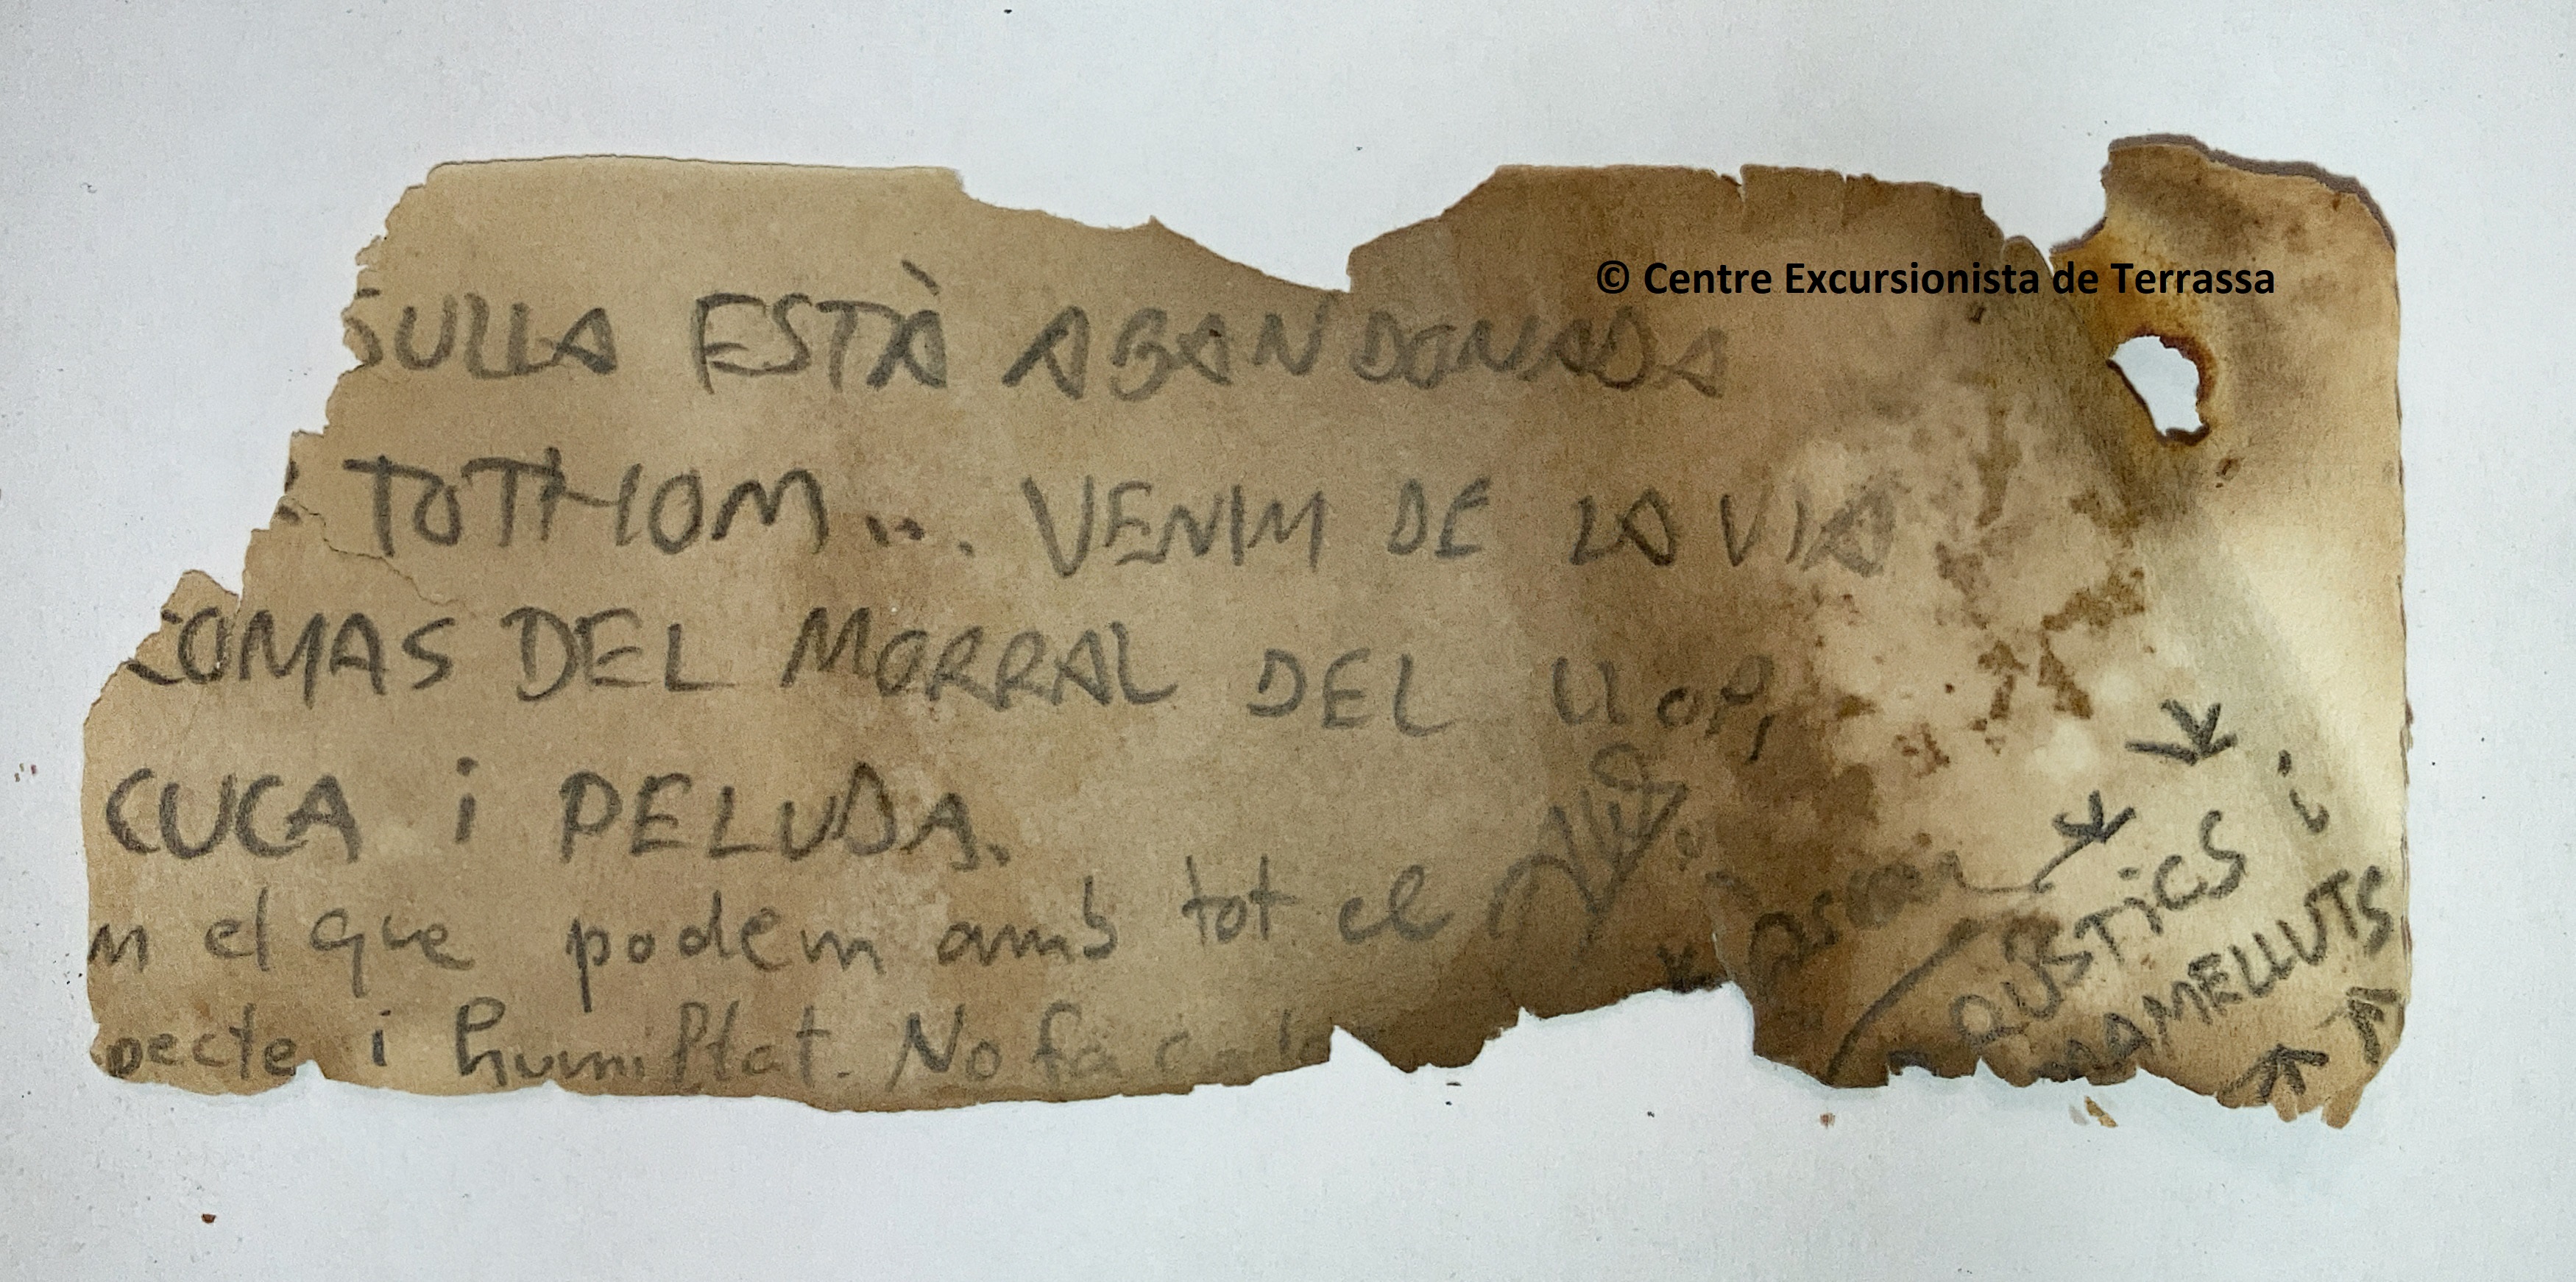 © Centre Excursionista de Terrassa
SULLA ESTÀ ABANDONADA
TOTHOM... VENIM DE LA VIA
COMAS DEL MORRAL DEL LLOP,
CUCA i PELUDA.
m el que podem amb tot el
pecte i humiltat. No fa
RUSTICS i
MAMELLUTS